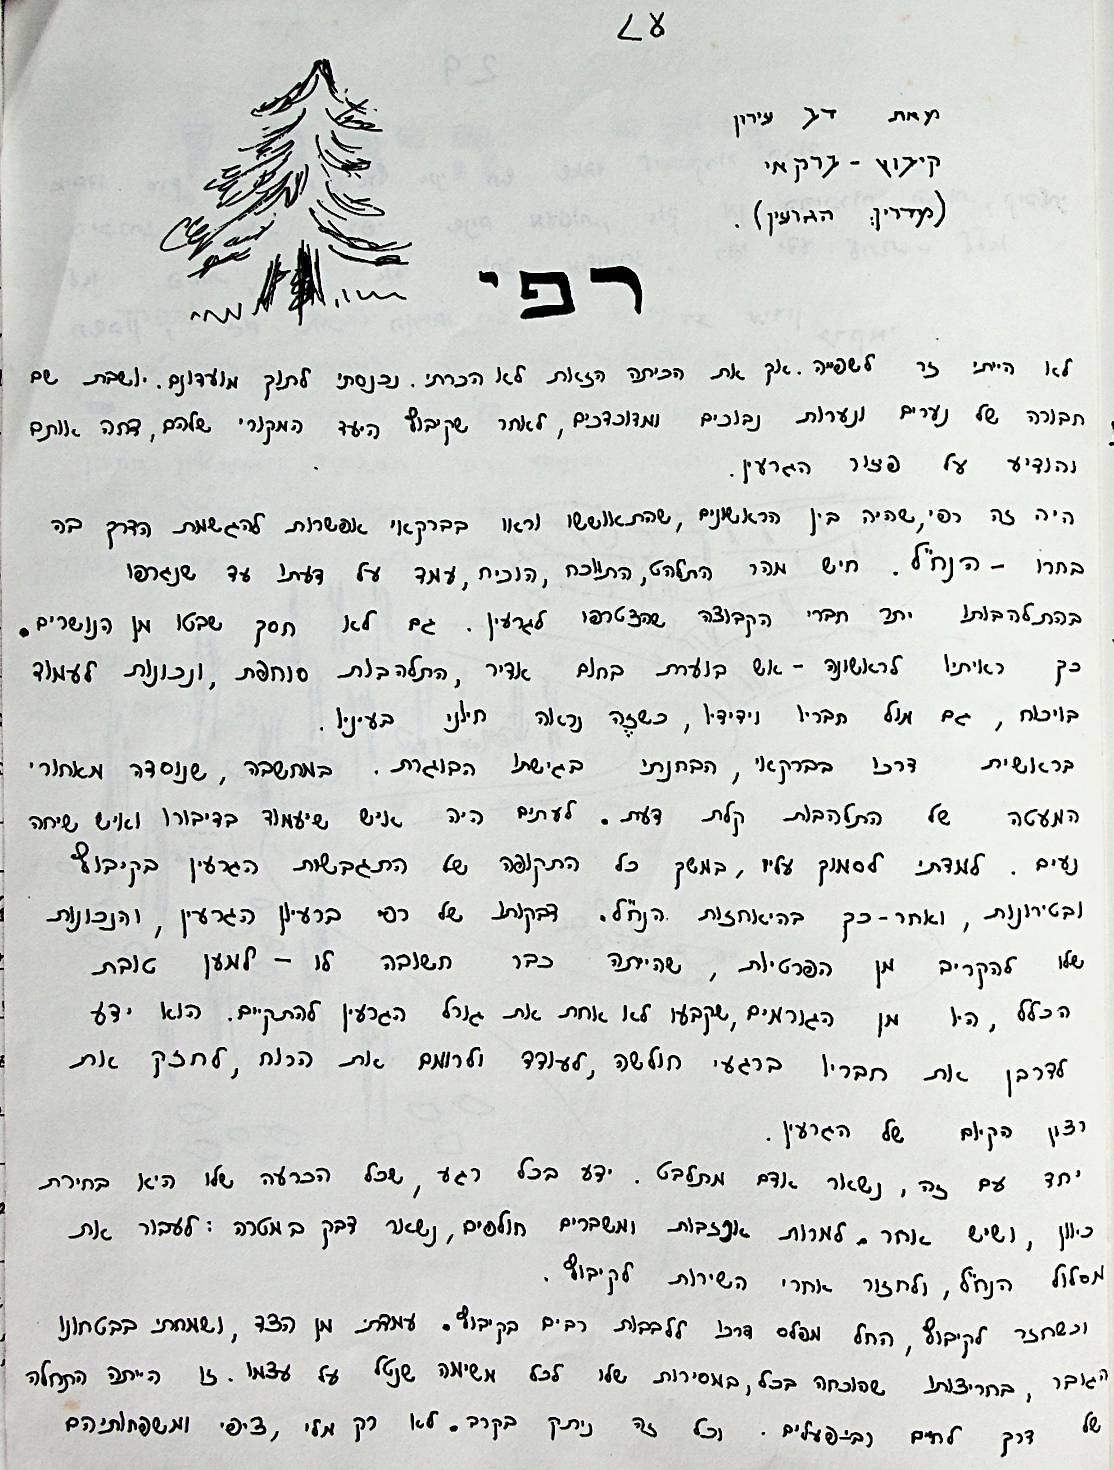 ע ל
מאת דב עירון
קיבוץ - ברקאי
(מדריך הגרעין).
רפי
לא הייתי זר לשפייה. אך את הכיתה הזאת לא הכרתי. נכנסתי לתוך מועדונם. יושבת שם
חבורה של נערים ונערות נבוכים ומדוכדכים, לאחר שקיבוץ היעד המקורי שלהם, דחה אותם
והודיע על פזור הגרעין.
היה זה רפי, שהיה בין הראשונים, שהתאוששו וראו בברקאי אפשרות להגשמת הדרך בה
בחרו - הנח"ל. חיש מהר התלהט, התווכח, הוכיח, עמד על דעתו עד שנגרפו
בהתלהבותו יתר חברי הקבוצה שהצטרפו לגרעין. גם לא חסך שבטו מן הנושרים.
כך ראיתיו לראשונה - אש בוערת בחום אדיר, התלהבות סוחפת, ונכונות לעמוד
בויכוח, גם מול חבריו וידידיו, כשזה נראה חיוני בעיניו.
בראשית דרכו בברקאי, הבחנתי בגישתו הבוגרת. במחשבה, שנוסדה מאחורי
המעטה של התלהבות קלת דעת. לעתים היה אניש שיעמוד בדיבורו ואיש שיחה
נעים. למדתי לסמוך עליו, במשך כל התקופה של התגבשות הגרעין בקיבוץ
ובטירונות, ואחר-כך בהיאחזות הנח"ל. דבקותו של רפי ברעיון הגרעין, והנכונות
שלו להקריב מן הפרטיות, שהייתה כבר חשובה לו - למען טובת
הכלל, היו מן הגורמים, שקבעו לא אחת את גורל הגרעין להתקיים. הוא ידע
לדרבן את חבריו ברגעי חולשה, לעודד ולרומם את הרוח, לחזק את
רצון הקיום של הגרעין.
יחד עם זה, נשאר אדם מתלבט. ידע בכל רגע, שכל הכרעה שלו היא בחירת
כיוון, ושיש אחר. למרות אכזבות ומשברים חולפים, נשאר דבק במטרה: לעבור את
מסלול הנח"ל, ולחזור אחרי השירות לקיבוץ.
וכשחזר לקיבוץ, החל מפלס דרכו ללבבות רבים בקיבוץ. עמדתי מן הצד, ושמחתי בבטחונו
הגובר, בחריצותו שהוכחה בכל, במסירות שלו לכל משימה שנטל על עצמו. זו הייתה התחלה
של דרך לחיים רבי-פעלים. וכל זה ניתק בקרב. לא רק מלי, ציפי ומשפחותיהם